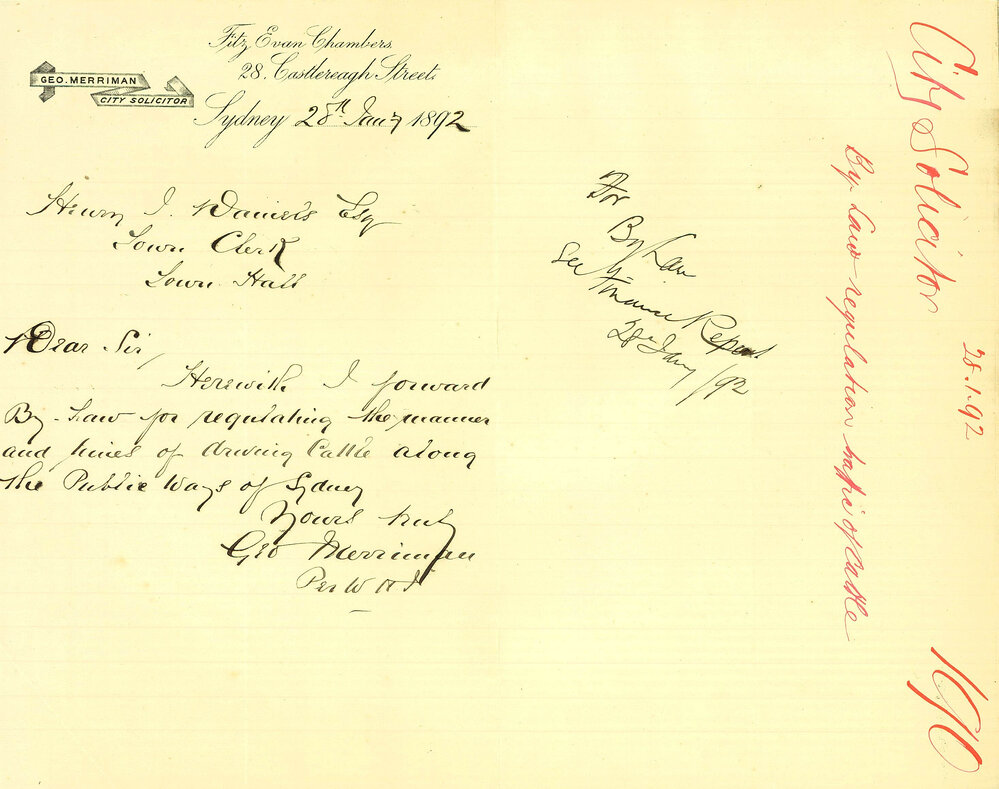 Fitz Evan Chambers
28, Castlereagh Street,
GEO. MERRIMAN
CITY SOLICITOR
Sydney 28th Jany 1892
Henry J. Daniels Esq
Town Clerk
Town Hall
Dear Sir,
Herewith I forward
By-Law for regulating the manner
and times of driving Cattle along
the Public Ways of Sydney
Yours truly
Geo Merriman
Per
For
By Law
See Finance Report
28th Jany /92
City Solicitor
28.1.92
By Law regulation traffic of Cattle